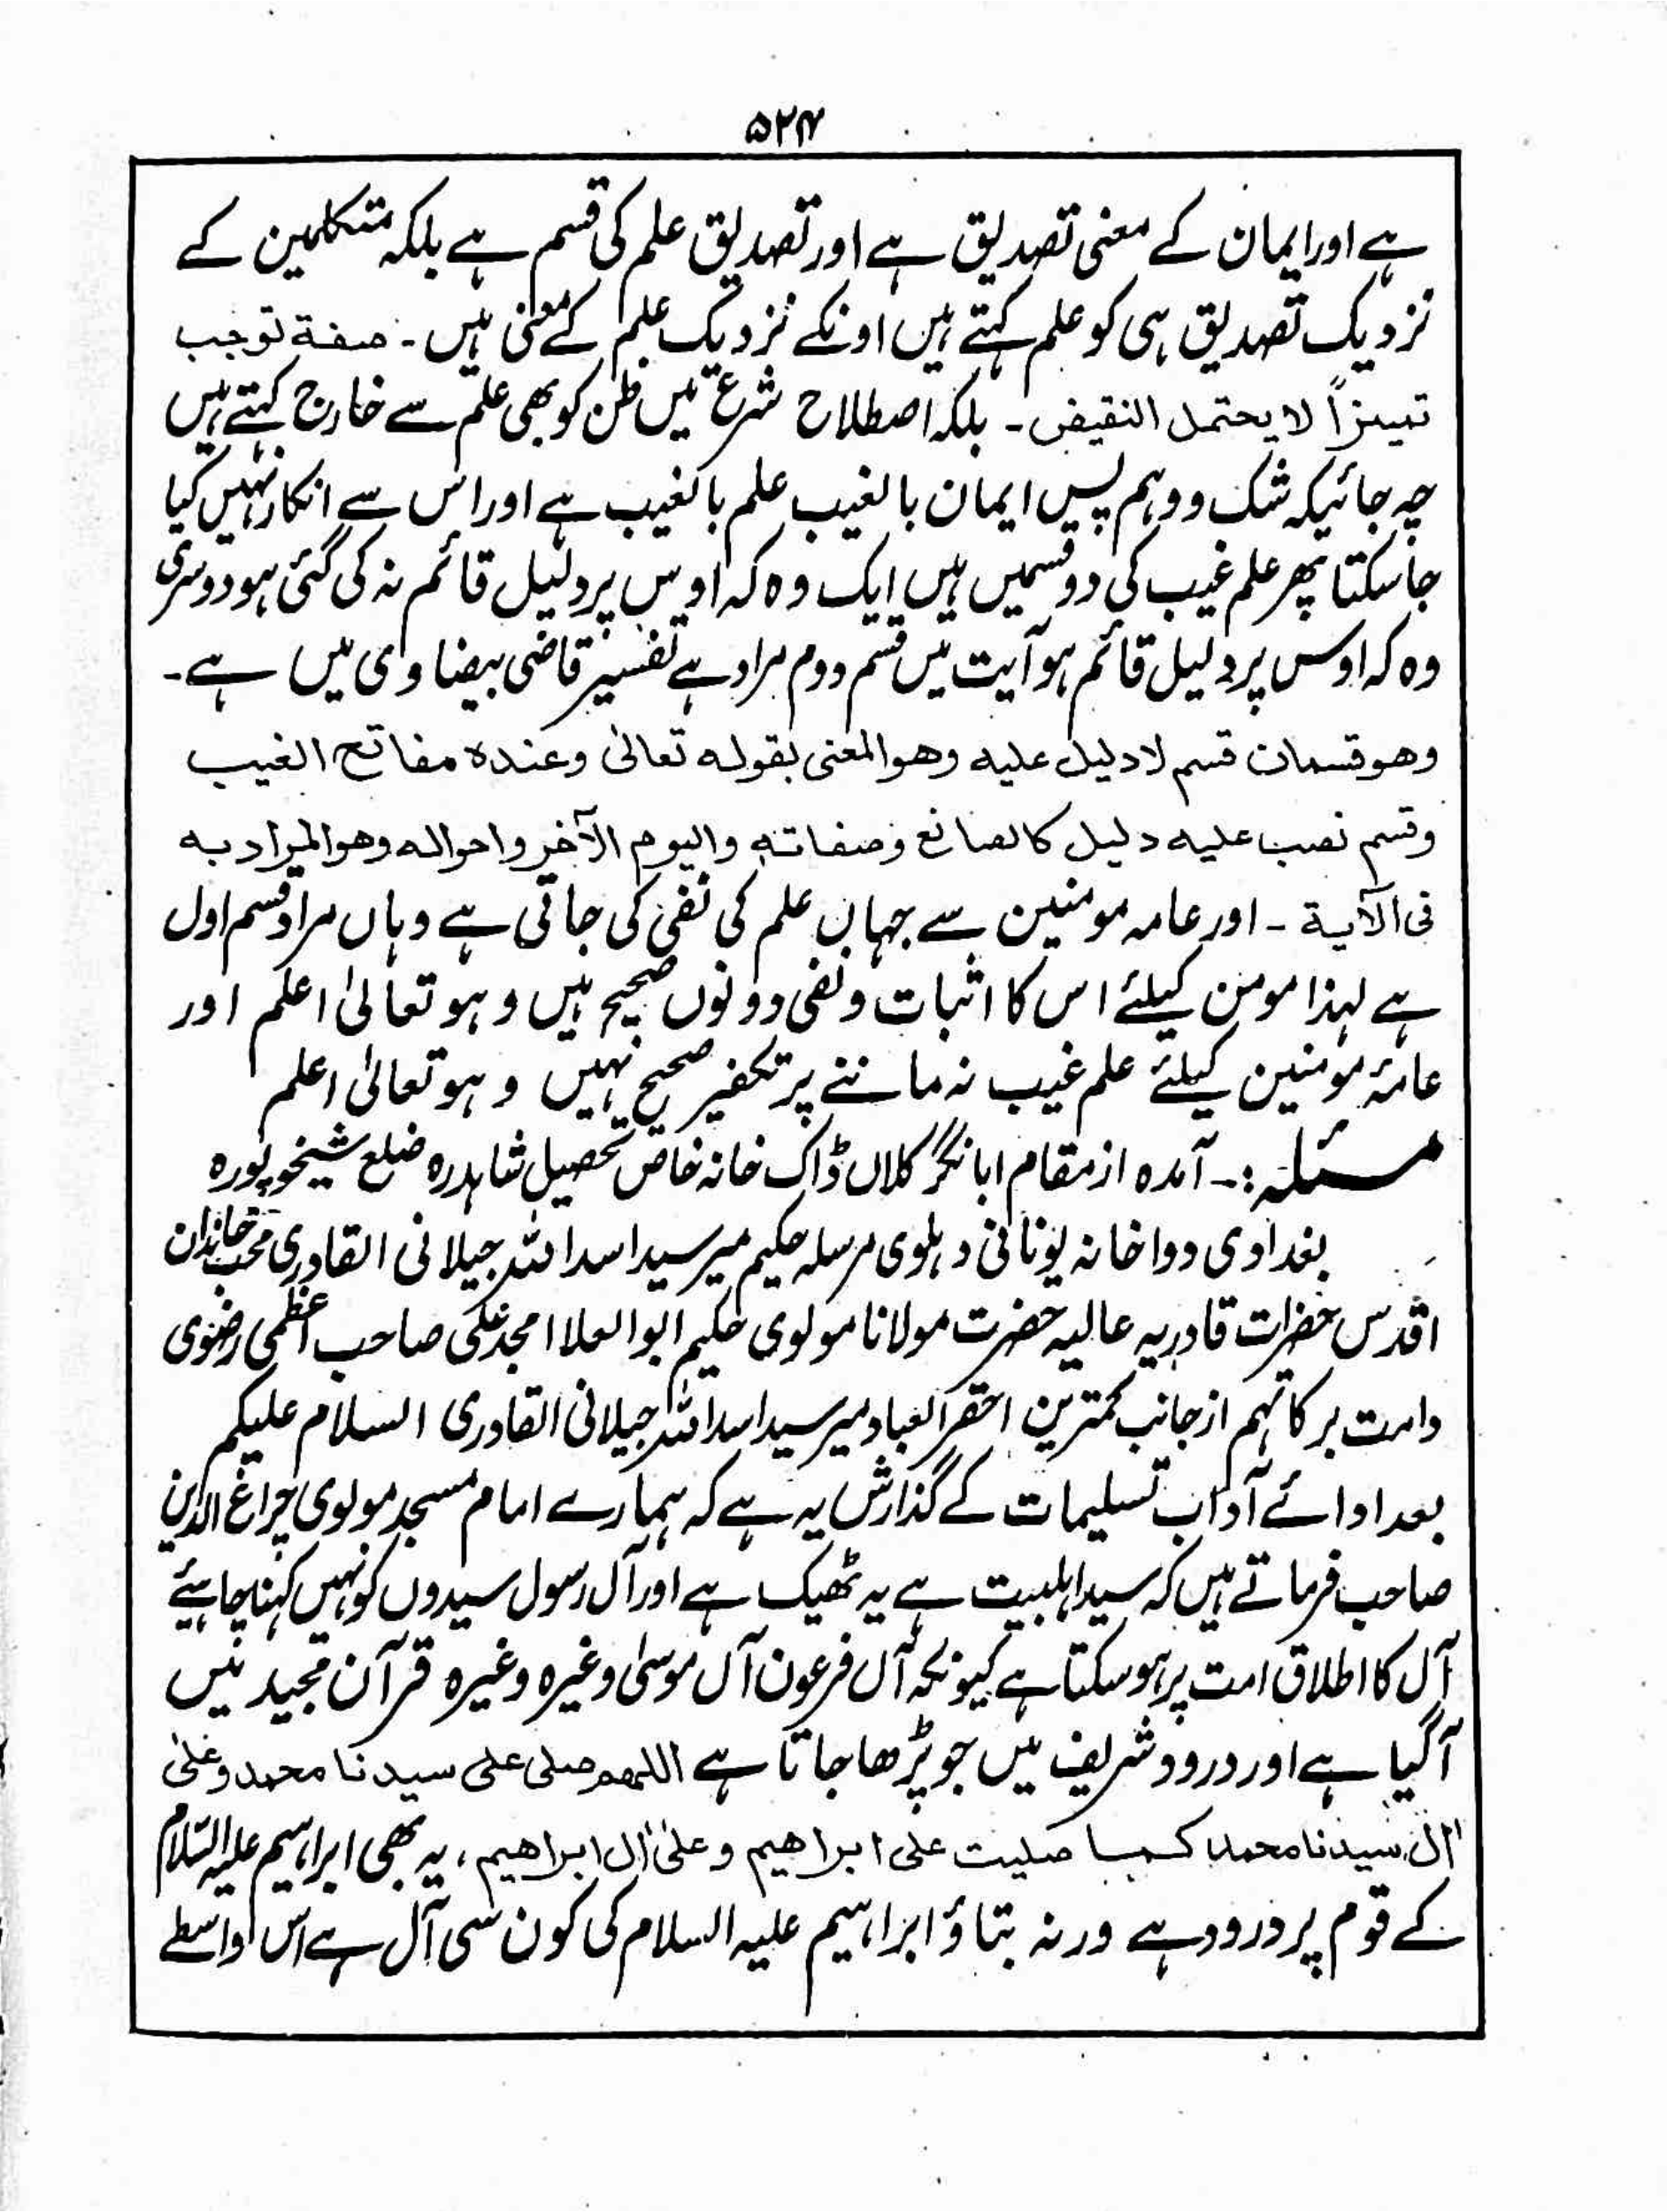 ۵۲۴
ہے اور ایمان کے معنی تصدیق ہے اور تصدیق علم کی قسم ہے بلکہ متکلمین کے
نزدیک تصدیق ہی کو علم کہتے ہیں اونکے نزدیک علم کے معنی ہیں ۔ صفة توجب
تمییزاً لا یحتمل النقیض ۔ بلکہ اصطلاح شرع میں ظن کو بھی علم سے خارج کہتے ہیں
چہ جائیکہ شک و وہم پس ایمان بالغیب علم بالغیب ہے اور اس سے انکار نہیں کیا
جا سکتا پھر علم غیب کی دو قسمیں ہیں ایک وہ کہ اوس پر دلیل قائم نہ کی گئی ہو دوسری
وہ کہ اوس پر دلیل قائم ہو آیت میں قسم دوم مراد ہے تفسیر قاضی بیضاوی میں ہے ۔
وھو قسمان قسم لا دلیل علیه وھو المعنی بقوله تعالیٰ وعندہ مفاتح الغیب
وقسم نصب علیه دلیل کالصانع وصفاته والیوم الآخر واحواله وھو المراد به
فی الآیة ۔ اور عامہ مومنین سے جہاں علم کی نفی کی جاتی ہے وہاں مراد قسم اول
ہے لہذا مومن کیلئے اس کا اثبات و نفی دونوں صحیح ہیں و ہو تعالیٰ اعلم اور
عامۂ مومنین کیلئے علم غیب نہ ماننے پر تکفیر صحیح نہیں و ہو تعالیٰ اعلم
مسئلہ :۔ آمدہ از مقام ابانگر کلاں ڈاک خانہ خاص تحصیل شاہدرہ ضلع شیخوپورہ
بغدادی دواخانہ یونانی دہلوی مرسلہ حکیم میر سید اسد اللہ جیلانی القادری محب خاندان
اقدس حضرات قادریہ عالیہ حضرت مولانا مولوی حکیم ابو العلا امجد علی صاحب اعظمی رضوی
دامت برکاتہم از جانب کمترین احقر العباد میر سید اسد اللہ جیلانی القادری السلام علیکم
بعد ادائے آداب تسلیمات کے گذارش یہ ہے کہ ہمارے امام مسجد مولوی چراغ الدین
صاحب فرماتے ہیں کہ سید اہلبیت ہے یہ ٹھیک ہے اور آل رسول سیدوں کو نہیں کہنا چاہیئے
آل کا اطلاق امت پر ہو سکتا ہے کیونکہ آل فرعون آل موسیٰ وغیرہ وغیرہ قرآن مجید میں
آ گیا ہے اور درود شریف میں جو پڑھا جاتا ہے اللهم صلی علی سیدنا محمد وعلیٰ
اٰل سیدنا محمد کما صلیت علی ابراھیم وعلیٰ اٰل ابراھیم ، یہ بھی ابراہیم علیہ السّلام
کے قوم پر درود ہے ورنہ بتاؤ ابراہیم علیہ السلام کی کون سی آل ہے اس واسطے